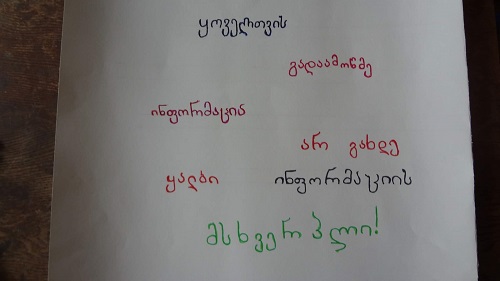 ყოველთვის
გადაამოწმე
ინფორმაცია
არ გახდე
ყალბი ინფორმაციის
მსხვერპლი!